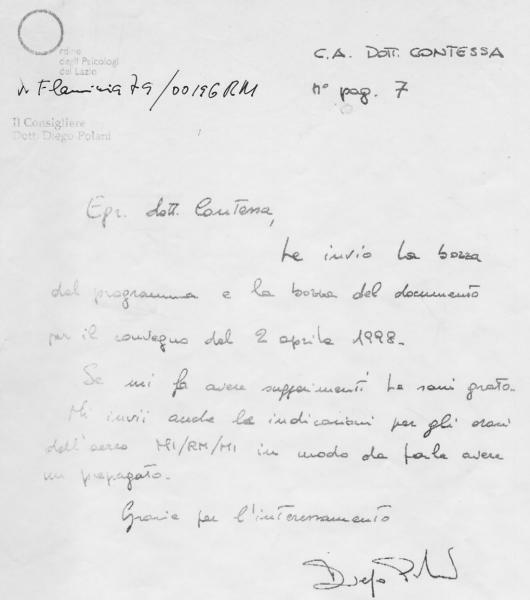 Ordine
degli Psicologi
del Lazio
C.A. DOTT. CONTESSA
V. Flaminia 79/00196 RM
n° pag. 7
Il Consigliere
Dott. Diego Polani
Egr. dott. Contessa,
Le invio la bozza
del programma e la bozza del documento
per il convegno del 2 aprile 1998.
Se mi fa avere suggerimenti Le sarò grato.
Mi invii anche le indicazioni per gli orari
dell'aereo MI/RM/MI in modo da farle avere
un prepagato.
Grazie per l'interessamento
Diego Polani